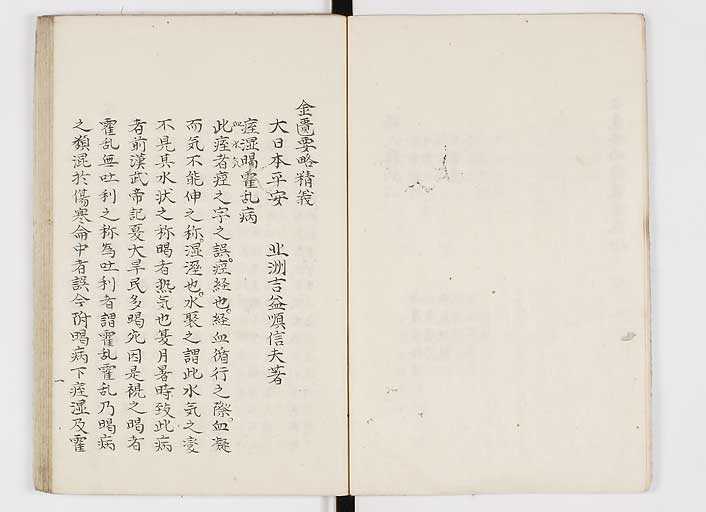 金匱要略精義
大日本平安　北洲吉益順信夫著
痙湿暍霍乱病
此痙者痙之字之誤痙経也経血循行之際血凝
而気不能伸之称湿溼也水聚之謂此水気之変
不見其水状之称暍者熱気也夏月暑時致此病
者前漢武帝記夏大旱民多暍死因是視之暍者
霍乱無吐利之称為吐利者謂霍乱霍乱乃暍病
之類混於傷寒侖中者誤今附暍病下痙湿及霍
一